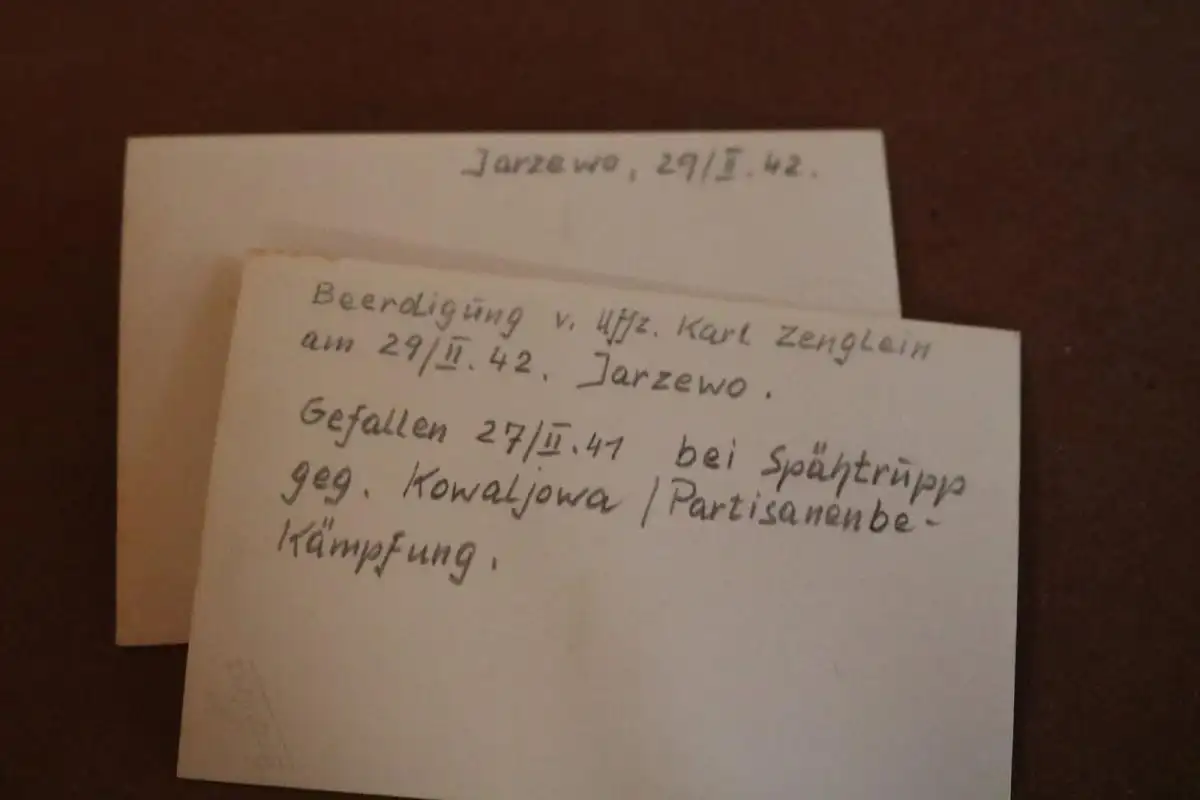 Jarzewo, 29/II.42.
Beerdigung v. Uffz. Karl Zenglein
am 29/II.42. Jarzewo.
Gefallen 27/II.41 bei Spähtrupp
geg. Kowaljowa / Partisanenbe-
kämpfung.